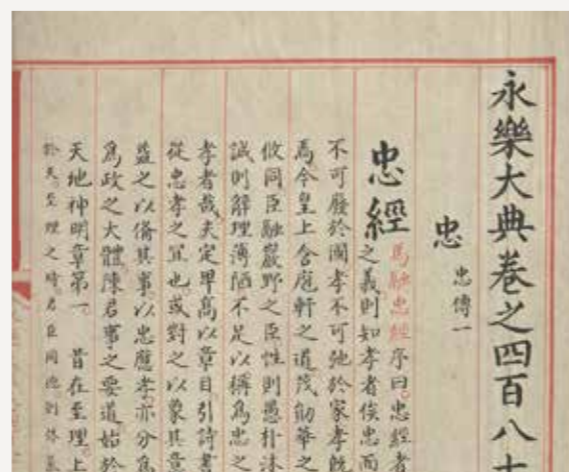 永樂大典卷之四百八十
忠 忠傳一
忠經 馬融忠經序曰忠經者
之義則知孝者俟忠而
不可廢於國孝不可弛於家孝既
焉今皇上含庖軒之道茂勛華之
伏同臣融巖野之臣性則愚朴沐
誠則辭理薄陋不足以稱焉忠之
孝者哉夫定卑高以章目引詩書
從忠孝之宜也或對之以象其意
益之以備其事以忠應孝亦分爲
爲政之大體陳君事之要道始於
天地神明章第一 昔在至理上
於天至理之時君臣同德則休